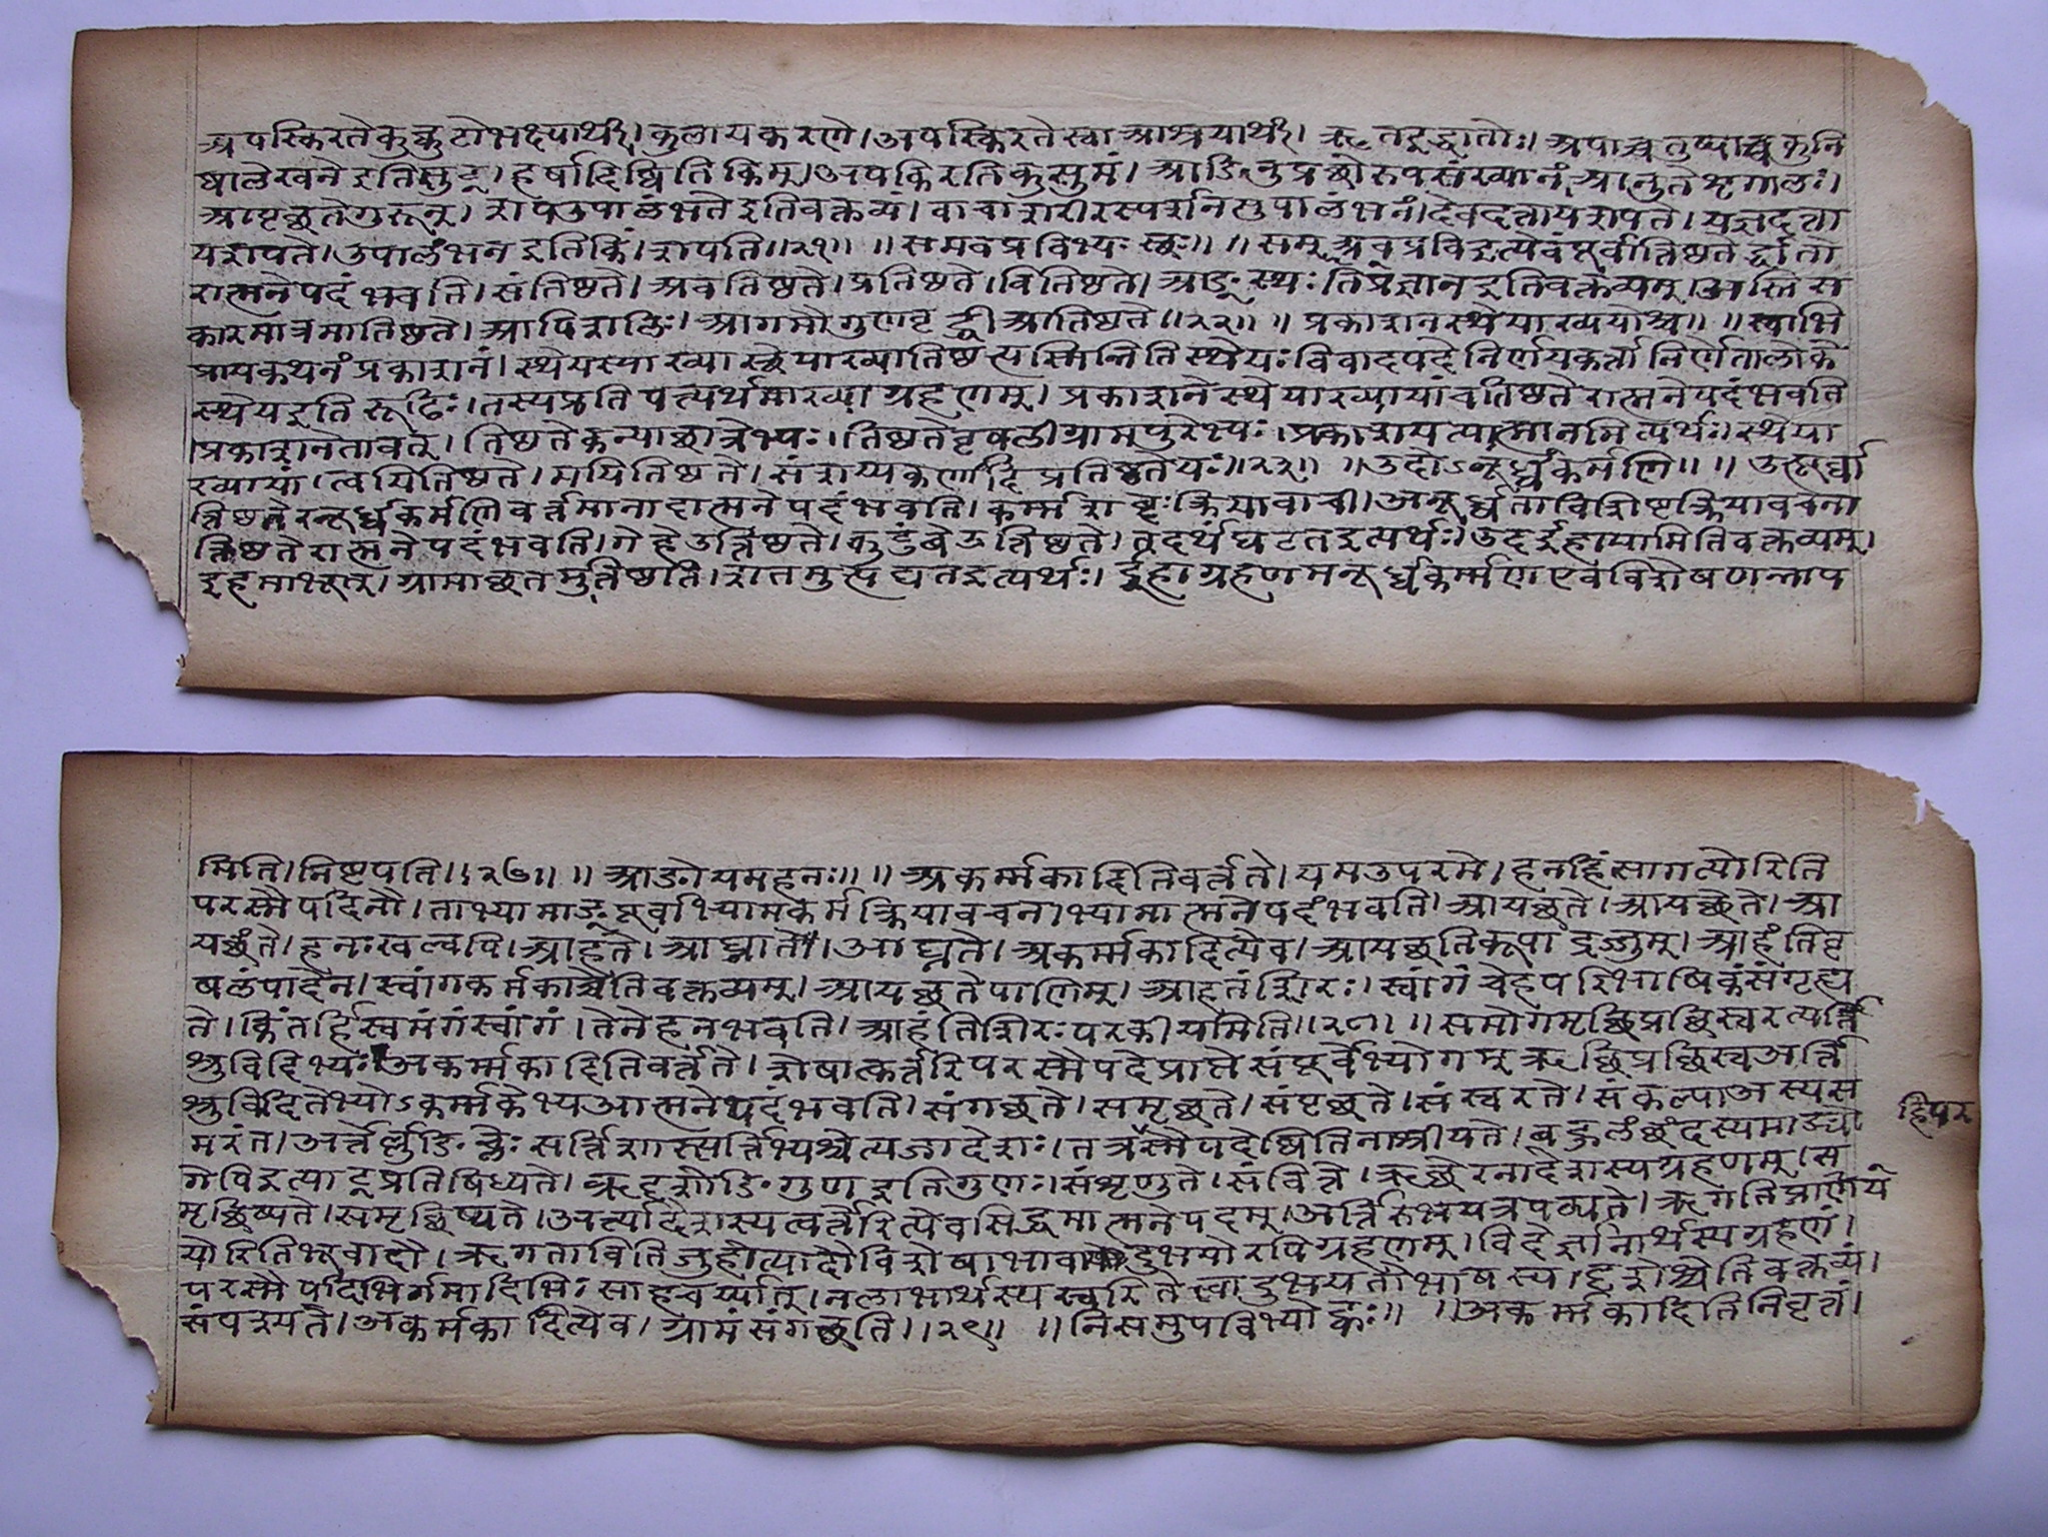 अपस्किरते कुक्कुटो भक्ष्यार्थी। कुलायकरणे। अपस्किरते स्वा आश्रयार्थी। ऋत इद्धातोः। अपाच्चतुष्पाच्छकुनि
ष्वालेखने इति सुट्। हर्षादिष्विति किम्। अपकिरति कुसुमं। आङि नुप्रछोरुपसंख्यानं आनुते शृगालः।
आपृच्छते गुरून्। शप उपालंभते इति वक्तव्यं। वाचा शरीरस्पर्शनमुपालंभनं। देवदत्ताय शपते। यज्ञदत्ता
य शपते। उपालंभन इति किं। शपति॥२१॥ ॥समवप्रविभ्यः स्थः॥ ॥सम् अव प्रवि इत्येवं पूर्वात्तिष्ठतेर्द्धातो
रात्मनेपदं भवति। संतिष्ठते। अवतिष्ठते। प्रतिष्ठते। वितिष्ठते। आङः स्थः प्रतिज्ञान इति वक्तव्यम्। अस्तिस
कारमात्रमातिष्ठते। आपिशलिः। आगमौ गुणवृद्धी आतिष्ठते॥२२॥ ॥प्रकाशनस्थेयाख्ययोश्च॥ ॥स्वाभि
प्रायकथनं प्रकाशनं। स्थेयस्याख्या स्थेयाख्या तिष्ठंत्यस्मिन्निति स्थेयः विवादपदे निर्णयकर्त्ता निर्णेता लोके
स्थेय इति रूढिः। तस्य प्रतिपत्यर्थमाख्याग्रहणम्। प्रकाशने स्थेयाख्यायां च तिष्ठतेरात्मनेपदं भवति
।प्रकाशने तावत्। तिष्ठते कन्या छात्रेभ्यः। तिष्ठते वृषली ग्रामपुत्रेभ्यः। प्रकाशयत्यात्मानमित्यर्थः। स्थेया
ख्यायां। त्वयि तिष्ठते। मयि तिष्ठते। संशय्य कर्णादिषु तिष्ठते यः॥२३॥ ॥उदोऽनूर्ध्वकर्मणि॥ ॥उत्पूर्वा
त्तिष्ठतेरनूर्ध्वकर्मणि वर्त्तमानादात्मनेपदं भवति। कर्म्मशब्दः क्रियावाची। अनूर्ध्वताविशिष्टक्रियावचना
त्तिष्ठतेरात्मनेपदं भवति। गेहे उत्तिष्ठते। कुटुंबे उत्तिष्ठते। तदर्थं घटत इत्यर्थः। उद ईहायामिति वक्तव्यम्।
इह माभूत्। ग्रामाच्छतमुत्तिष्ठति। शतमुत्पद्यत इत्यर्थः। ईहाग्रहणमनूर्ध्वकर्म्मण एव विशेषणन्नाप
मिति। निष्टपति॥२७॥ ॥आङो यमहनः॥ ॥अकर्म्मकादिति वर्त्तते। यम उपरमे। हन हिंसागत्योरिति
परस्मैपदिनौ। ताभ्यामाङ्पूर्वाभ्यामकर्मक्रियावचनाभ्यामात्मनेपदं भवति। आयच्छते। आयच्छेते। आ
यच्छंते। हनः खल्वपि। आहते। आघ्नाते। आघ्नते। अकर्म्मकादित्येव। आयच्छति कूपाद्रज्जुम्। आहंति वृ
षलं पादेन। स्वांगकर्मकाच्चेति वक्तव्यम्। आयच्छते पाणिम्। आहते शिरः। स्वांगं चेह परिभाषिकं संगृह्य
ते। किं तर्हि स्वमंगं स्वांगं। तेनेह न भवति। आहंति शिरः परकीयमिति॥२८॥ ॥समो गमृच्छिप्रच्छिस्वरत्यर्त्ति
श्रुविदिभ्यः॥ अकर्म्मकादिति वर्त्तते। शेषात्कर्त्तरि परस्मैपदे प्राप्ते संपूर्वेभ्यो गम् ऋच्छि प्रच्छि स्वृ अर्त्ति
श्रु विदितेभ्योऽकर्म्मकेभ्य आत्मनेपदं भवति। संगच्छते। समृच्छते। संपृच्छते। संस्वरते। संकल्पा अस्य स
मरंत। अर्त्तेर्लुङि च्लेः सर्त्तिशास्त्यर्त्तिभ्यश्चेत्यङादेशः। तत्र स्मैपदेष्विति नाश्रीयते। बहुलं छंदस्यमाङ्यो
हिपर
गेपि इत्याट् प्रतिषिध्यते। ऋदृशोङि गुण इति गुणः। संशृणुते। संवित्ते। ऋच्छेरनादेशस्य ग्रहणम्। स
मृच्छिष्यते। समृच्छिष्यते। अर्त्यादेशस्य त्वर्त्तेरित्येव सिद्धमात्मनेपदम्। अर्त्तिरुभयत्र पठ्यते। ऋ गतिप्रापण
योरिति भ्वादौ। ऋ गताविति जुहोत्यादौ विशेषाभावादुभयोरपि ग्रहणम्। विदेर्ज्ञानार्थस्य ग्रहणं।
परस्मैपदिभिर्गमादिभिः साहचर्य्यात्। न लाभार्थस्य स्वरितेत्वादुभयतोभाषस्य। दृशेश्चेति वक्तव्यं।
संपश्यते। अकर्मकादित्येव। ग्रामं संगच्छति॥२९॥ ॥निसमुपविभ्यो ह्वः॥ ॥अकर्म्मकादिति निवृत्तं।